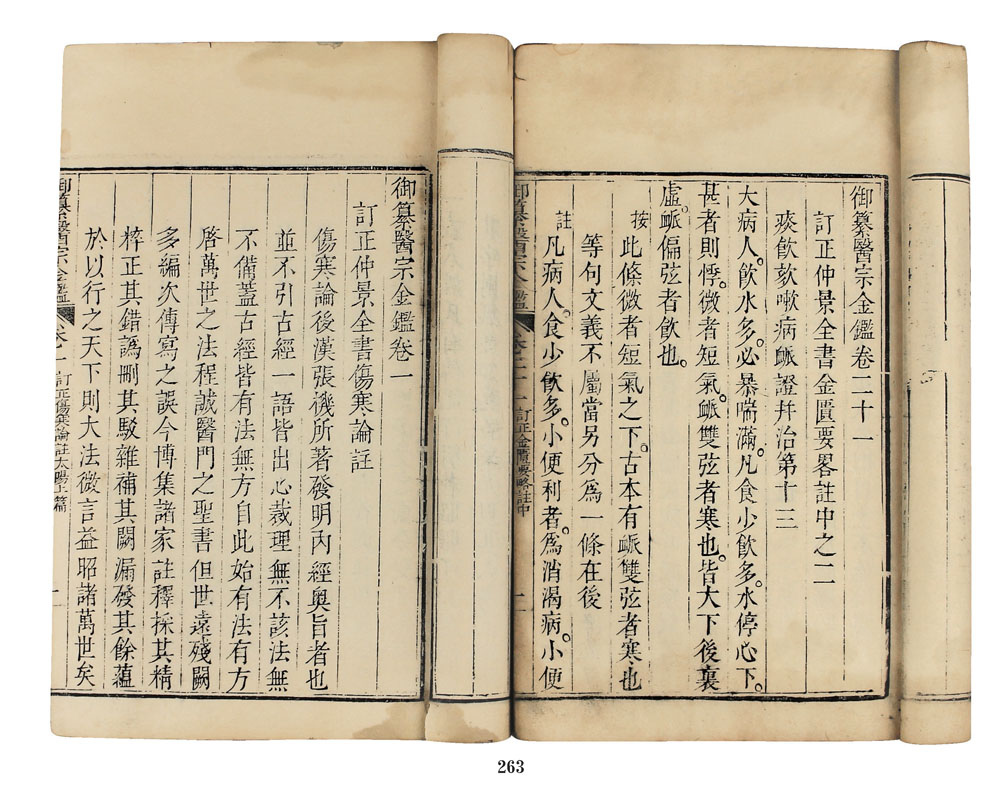 御纂醫宗金鑑卷二十一
訂正仲景全書金匱要畧註中之二
痰飲欬嗽病脈證幷治第十三
大病人飲水多必暴喘滿凡食少飲多水停心下
甚者則悸微者短氣脈雙弦者寒也皆大下後裏
虛脈偏弦者飲也
按此條微者短氣之下古本有脈雙弦者寒也
等句文義不屬當另分爲一條在後
註凡病人食少飲多小便利者爲消渴病小便
御纂醫宗金鑑 卷二十一 訂正金匱要略註中 一
御纂醫宗金鑑卷一
訂正仲景全書傷寒論註
傷寒論後漢張機所著發明內經奧旨者也
並不引古經一語皆出心裁理無不該法無
不備蓋古經皆有法無方自此始有法有方
啓萬世之法程誠醫門之聖書但世遠殘闕
多編次傳寫之誤今博集諸家註釋採其精
粹正其錯譌刪其駁雜補其闕漏發其餘蘊
於以行之天下則大法微言益昭諸萬世矣
御纂醫宗金鑑 卷一 訂正傷寒論註太陽上篇 一
263